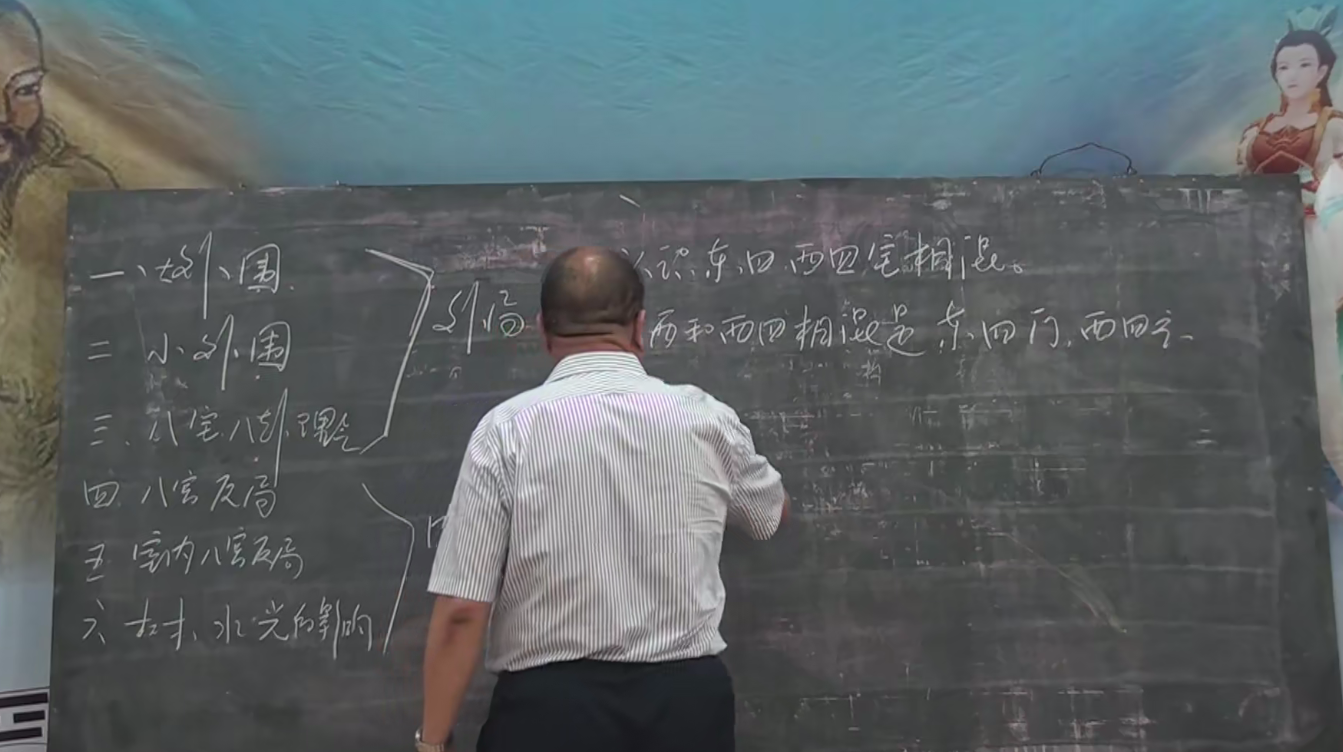 一、大外围.
二 小外围
三、八宅八卦理论
四 八宫反局
五 室内八宫反局
六、木水光的影响
外局
识东四西四宅相混。
西和西四相混是东四门,西四主